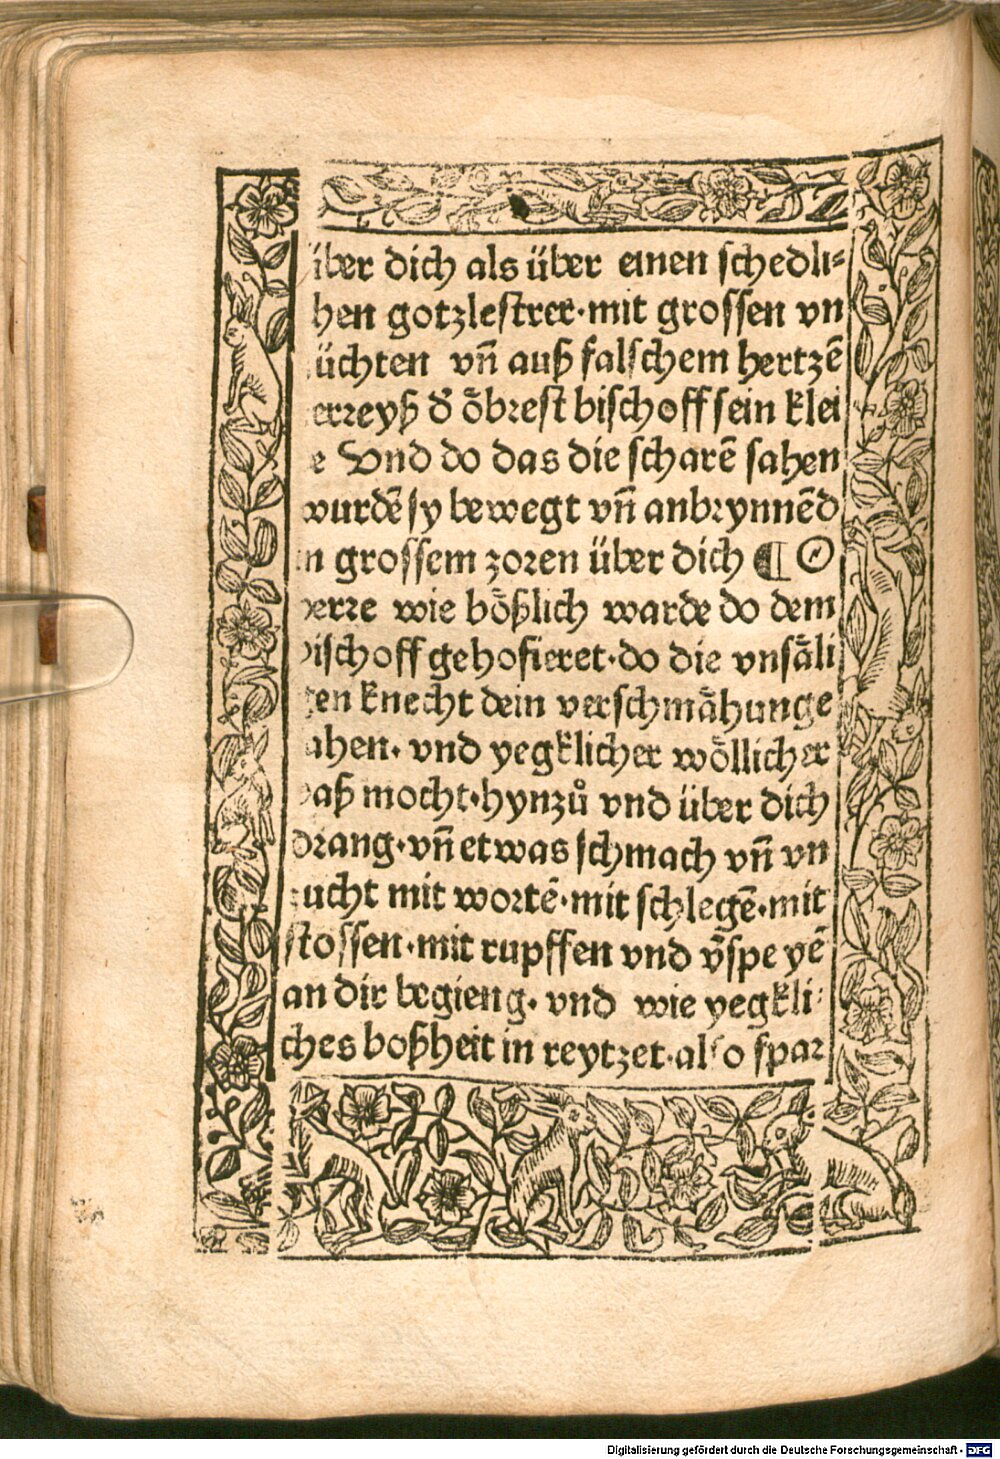 über dich als über einen schedli⸗
hen gotzlestrer·mit grossen vn
üchten vn̄ auß falschem hertzē
erreyß d̕ öbrest bischoff sein klei
e Vnd do das die scharē sahen
wurdē sy bewegt vn̄ anbrynnēd
n grossem zoren über dich ¶ O
herre wie bößlich warde do dem
bischoff gehofieret·do die vnsäli
gen knecht dein verschmähunge
ahen· vnd yegklicher wöllicher
baß mocht·hynzů vnd über dich
drang·vn̄ etwas schmach vn̄ vn
zucht mit wortē·mit schlegē·mit
stossen·mit rupffen vnd v̄speyē
an dir begieng· vnd wie yegkli⸗
ches boßheit in reytzet·also spar
Digitalisierung gefördert durch die Deutsche Forschungsgemeinschaft - DFG